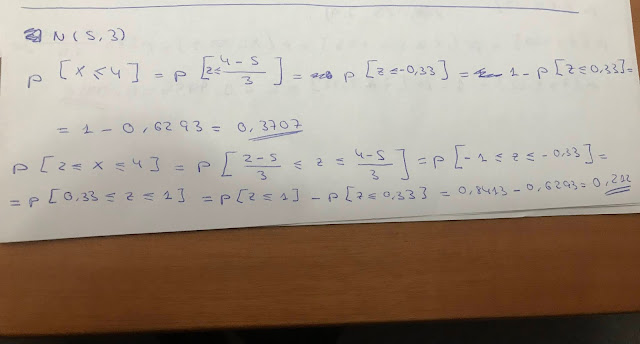 N(5,3)
p[x≤4] = p[z≤ 4-5/3] = p[z≤-0,33] = 1-p[z≤0,33]=
= 1 - 0,6293 = 0,3707
p[2≤x≤4] = p[2-5/3 ≤ z ≤ 4-5/3] = p[-1≤z≤-0,33]=
= p[0,33≤z≤1] = p[z≤1] - p[z≤0,33] = 0,8413-0,6293=0,212